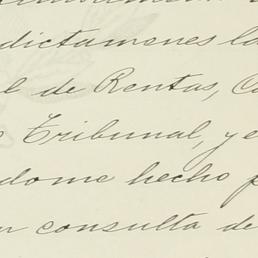 dictamenes la
l de Rentas, Co
Tribunal, y e
dome hecho p
n consulta de